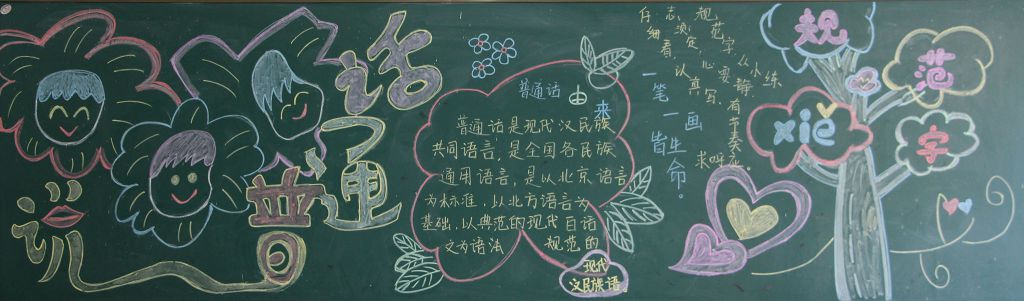 说普通话
普通话由来
普通话是现代汉民族
共同语言，是全国各民族
通用语言，是以北京语言
为标准，以北方语言为
基础，以典范的现代白话
文为语法 规范的
现代
汉民族语。
规范字，从小练，
志须定，心要静，
仔细看，认真写，
有节奏
求呼应。
一笔一画皆生命。
规
范
xiě
字